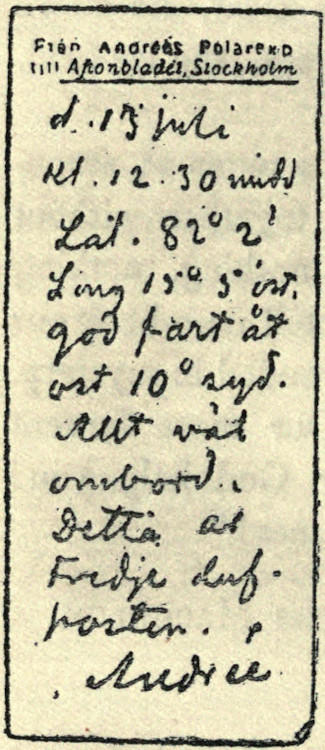 Från Andreés Polarexp
till Aftonbladet, Stockholm
d. 13 juli
kl. 12.30 midd
Lat. 82° 2'
Long 15° 5' ost.
god fart åt
ost 10° syd.
Allt väl
ombord.
Detta är
tredje duf-
posten.
Andrée